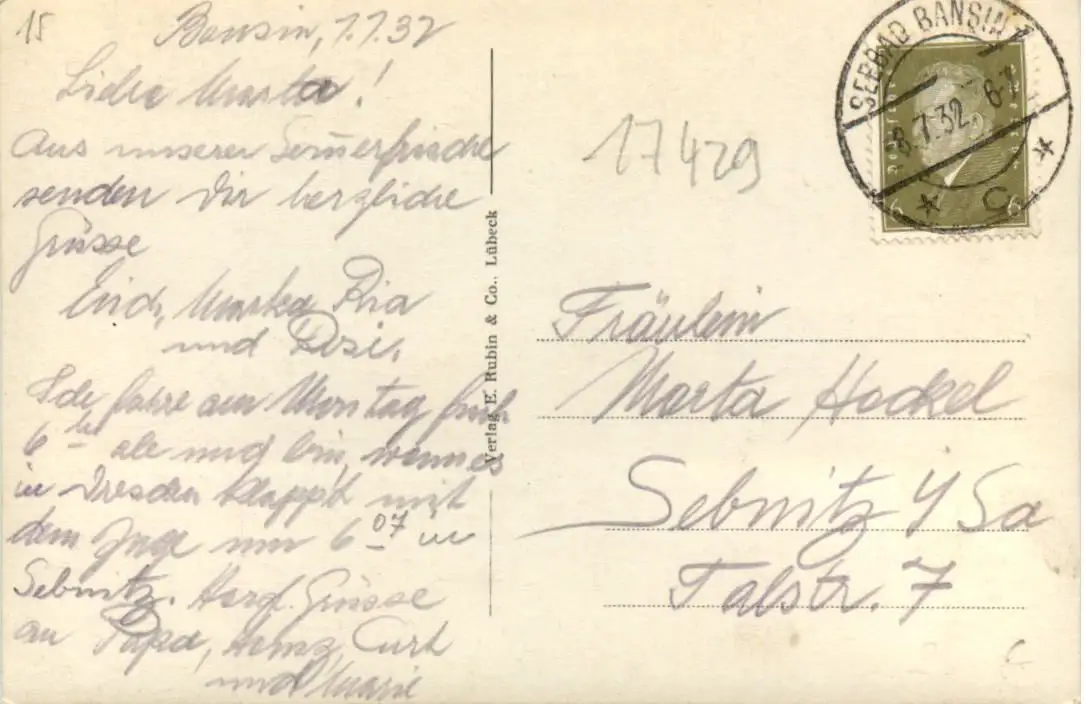 15
Bansin, 7.7.32
Liebe Marta!
Aus unserer Somerfrische
senden Dir herzliche
Grüsse
Erich, Marka Ria
und Rosi.
Ich fahre am Montag früh
6 ab und bin, wenn es
in Dresden klappt mit
dem Zuge um 6 07 in
Sebnitz. Herzl. Grüsse
an Papa, Heinz, Curt
und Marie
Verlag E. Rubin & Co., Lübeck
17429
SEEBAD BANSIN
8.7.32. 6-7
* C *
6 6
Fräulein
Marta Hockel
Sebnitz i/Sa
Talstr. 7